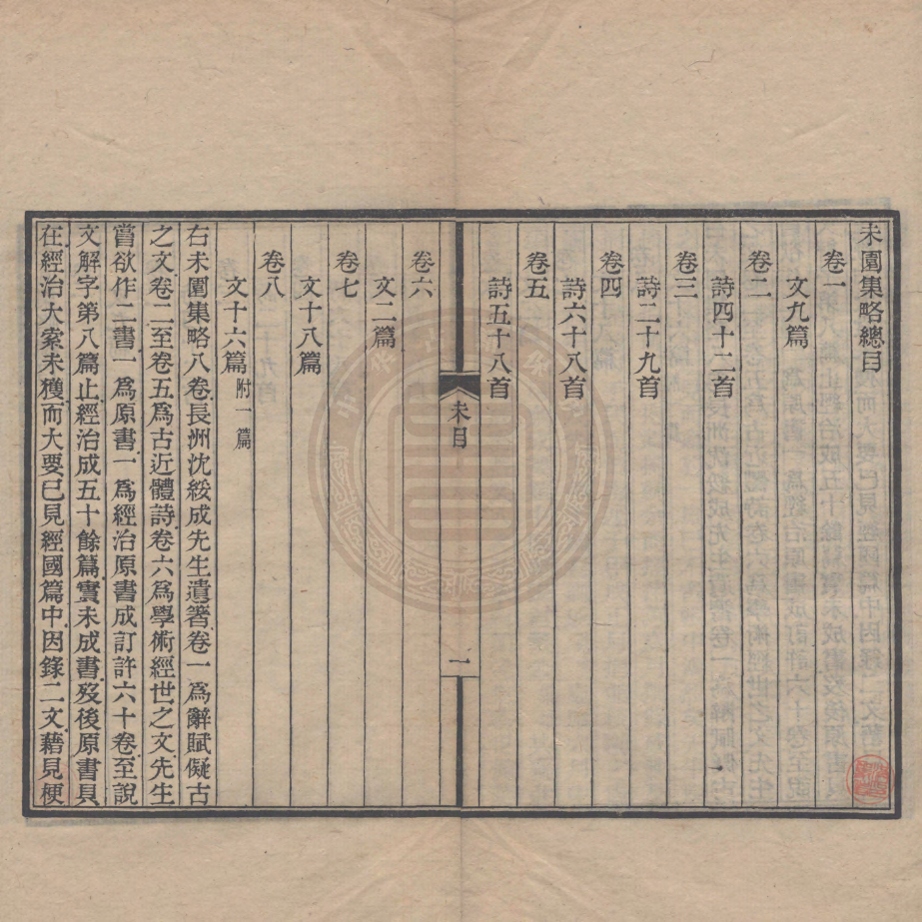 未園集略總目
卷一
文九篇
卷二
詩四十二首
卷三
詩二十九首
卷四
詩六十八首
卷五
詩五十八首
未目
一
卷六
文二篇
卷七
文十八篇
卷八
文十六篇附一篇
右未園集略八卷長洲沈綏成先生遺箸卷一爲辭賦儗古
之文卷二至卷五爲古近體詩卷六爲學術經世之文先生
嘗欲作二書一爲原書一爲經治原書成訂許六十卷至說
文解字第八篇止經治成五十餘篇實未成書歿後原書具
在經治大索未獲而大要已見經國篇中因錄二文藉見梗